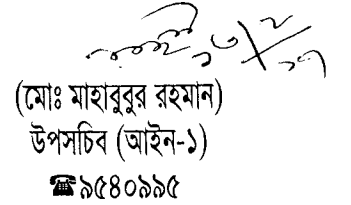 (মোঃ মাহাবুবুর রহমান)
উপসচিব (আইন-১)
☎৯৫৪০৯৯৫